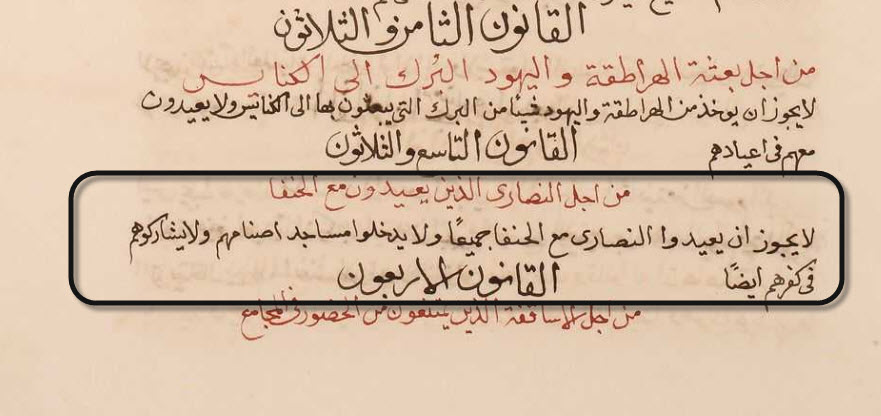 القانون الثامن والثلاثون
من اجل بعثة الهراطقة واليهود البرك الى الكنايس
لايجوز ان يوخذ من الهراطقة واليهود شيئا من البرك التي يبعثون بها الى الكنايس ولا يعيدون
معهم في اعيادهم القانون التاسع والثلاثون
من اجل النصارى الذين يعيدون مع الحنفا
لايجوز ان يعيدوا النصارى مع الحنفا جميعًا ولا يدخلوا مساجد اصنامهم ولايشاركوهم
في كفرهم ايضًا القانون الاربعون
من اجل الاساقفة الذين يتخلفون من الحضور في المجامع